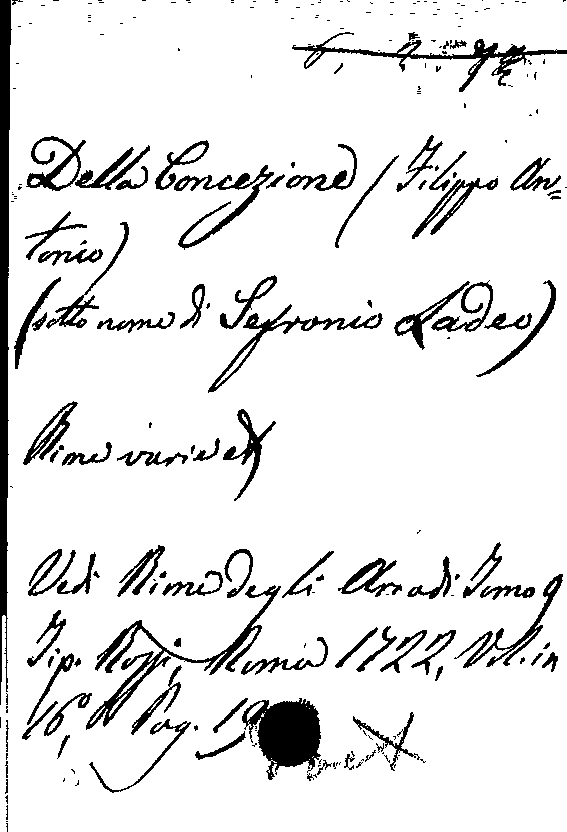 6, 2.
Della Concezione (Filippo An=
tonio)
(sotto nome di Sefronio Ladeo)
Rime varie
Vedi Rime degli Arcadi Tomo 9
Tip. Rossi, Roma 1722, Vol. in
16°, Pag. 19